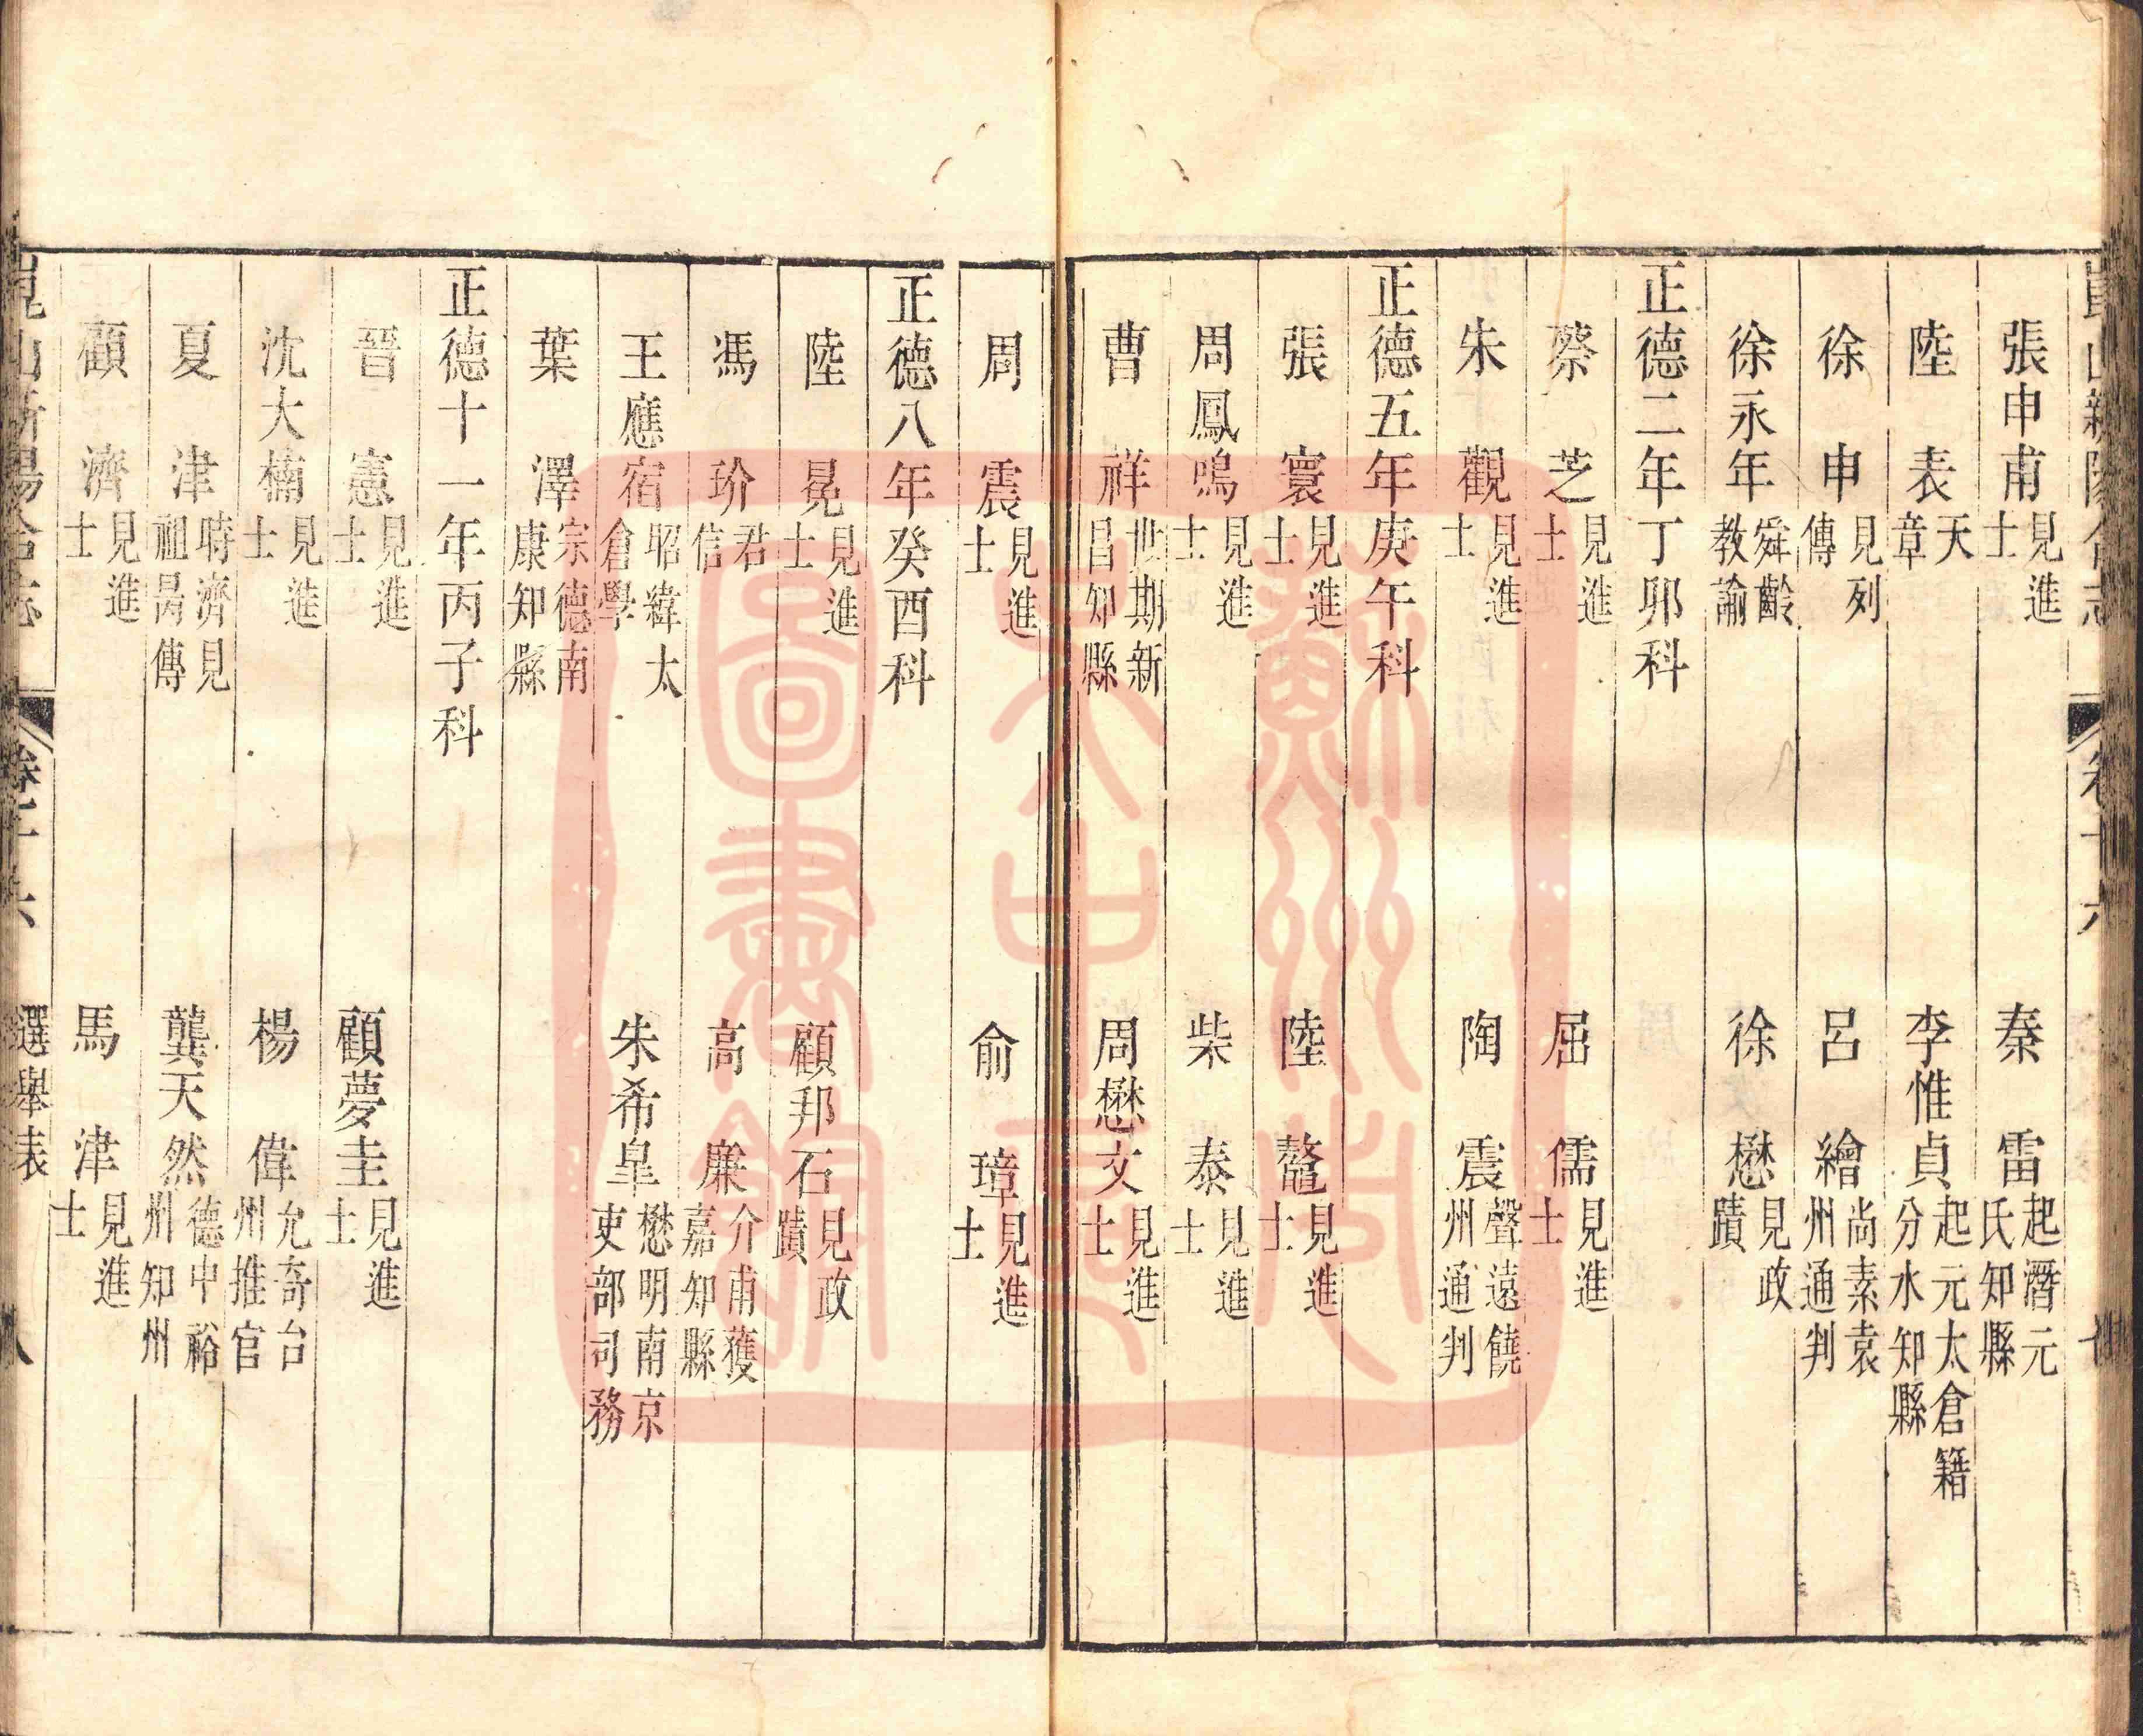 崑山新陽合志 卷十六
張申甫 見進士 秦雷 起潛元氏知縣
陸表 天章 李惟貞 起元太倉籍分水知縣
徐申 見列傳 呂繪 尚素袁州通判
徐永年 舜齡教諭 徐懋 見政蹟
正德二年丁卯科
蔡芝 見進士 屈儒 見進士
朱觀 見進士 陶震 聲遠饒州通判
正德五年庚午科
張寰 見進士 陸鰲 見進士
周鳳鳴 見進士 柴泰 見進士
曹祥 世期新昌知縣 周懋文 見進士
周震 見進士 俞璋 見進士
正德八年癸酉科
陸冕 見進士 顧邦石 見政蹟
馮玠 君信 高廉 介甫獲嘉知縣
王應宿 昭緯太倉學 朱希皐 懋明南京吏部司務
葉澤 宗德南康知縣
正德十一年丙子科
晉憲 見進士 顧夢圭 見進士
沈大楠 見進士 楊偉 允奇台州推官
夏津 時濟見祖昺傳 龔天然 德中裕州知州
顧濟 見進士 馬津 見進士
崑山新陽合志 卷十六 選舉表 八
蘇州市中心圖書館